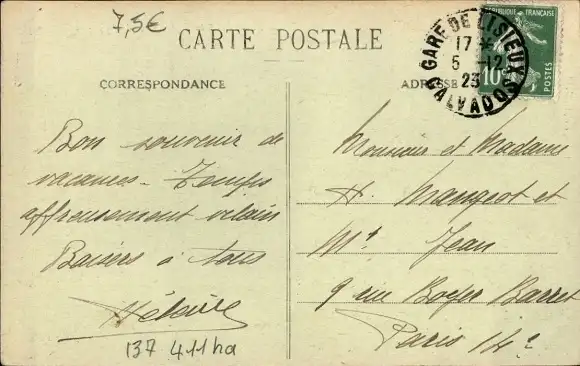 7,5€
CARTE POSTALE
CORRESPONDANCE
ADRESSE
RÉPUBLIQUE FRANÇAISE
10
POSTES
GARE DE LISIEUX
17
5 -12
23
CALVADOS
Bon souvenir de
vacances - Temps
affreusement vilain
Baisers à tous
Héloïse
137 411ha
Monsieur et Madame
H. Mangeot et
Mr Jean
9 rue Boyer Barret
Paris 14e